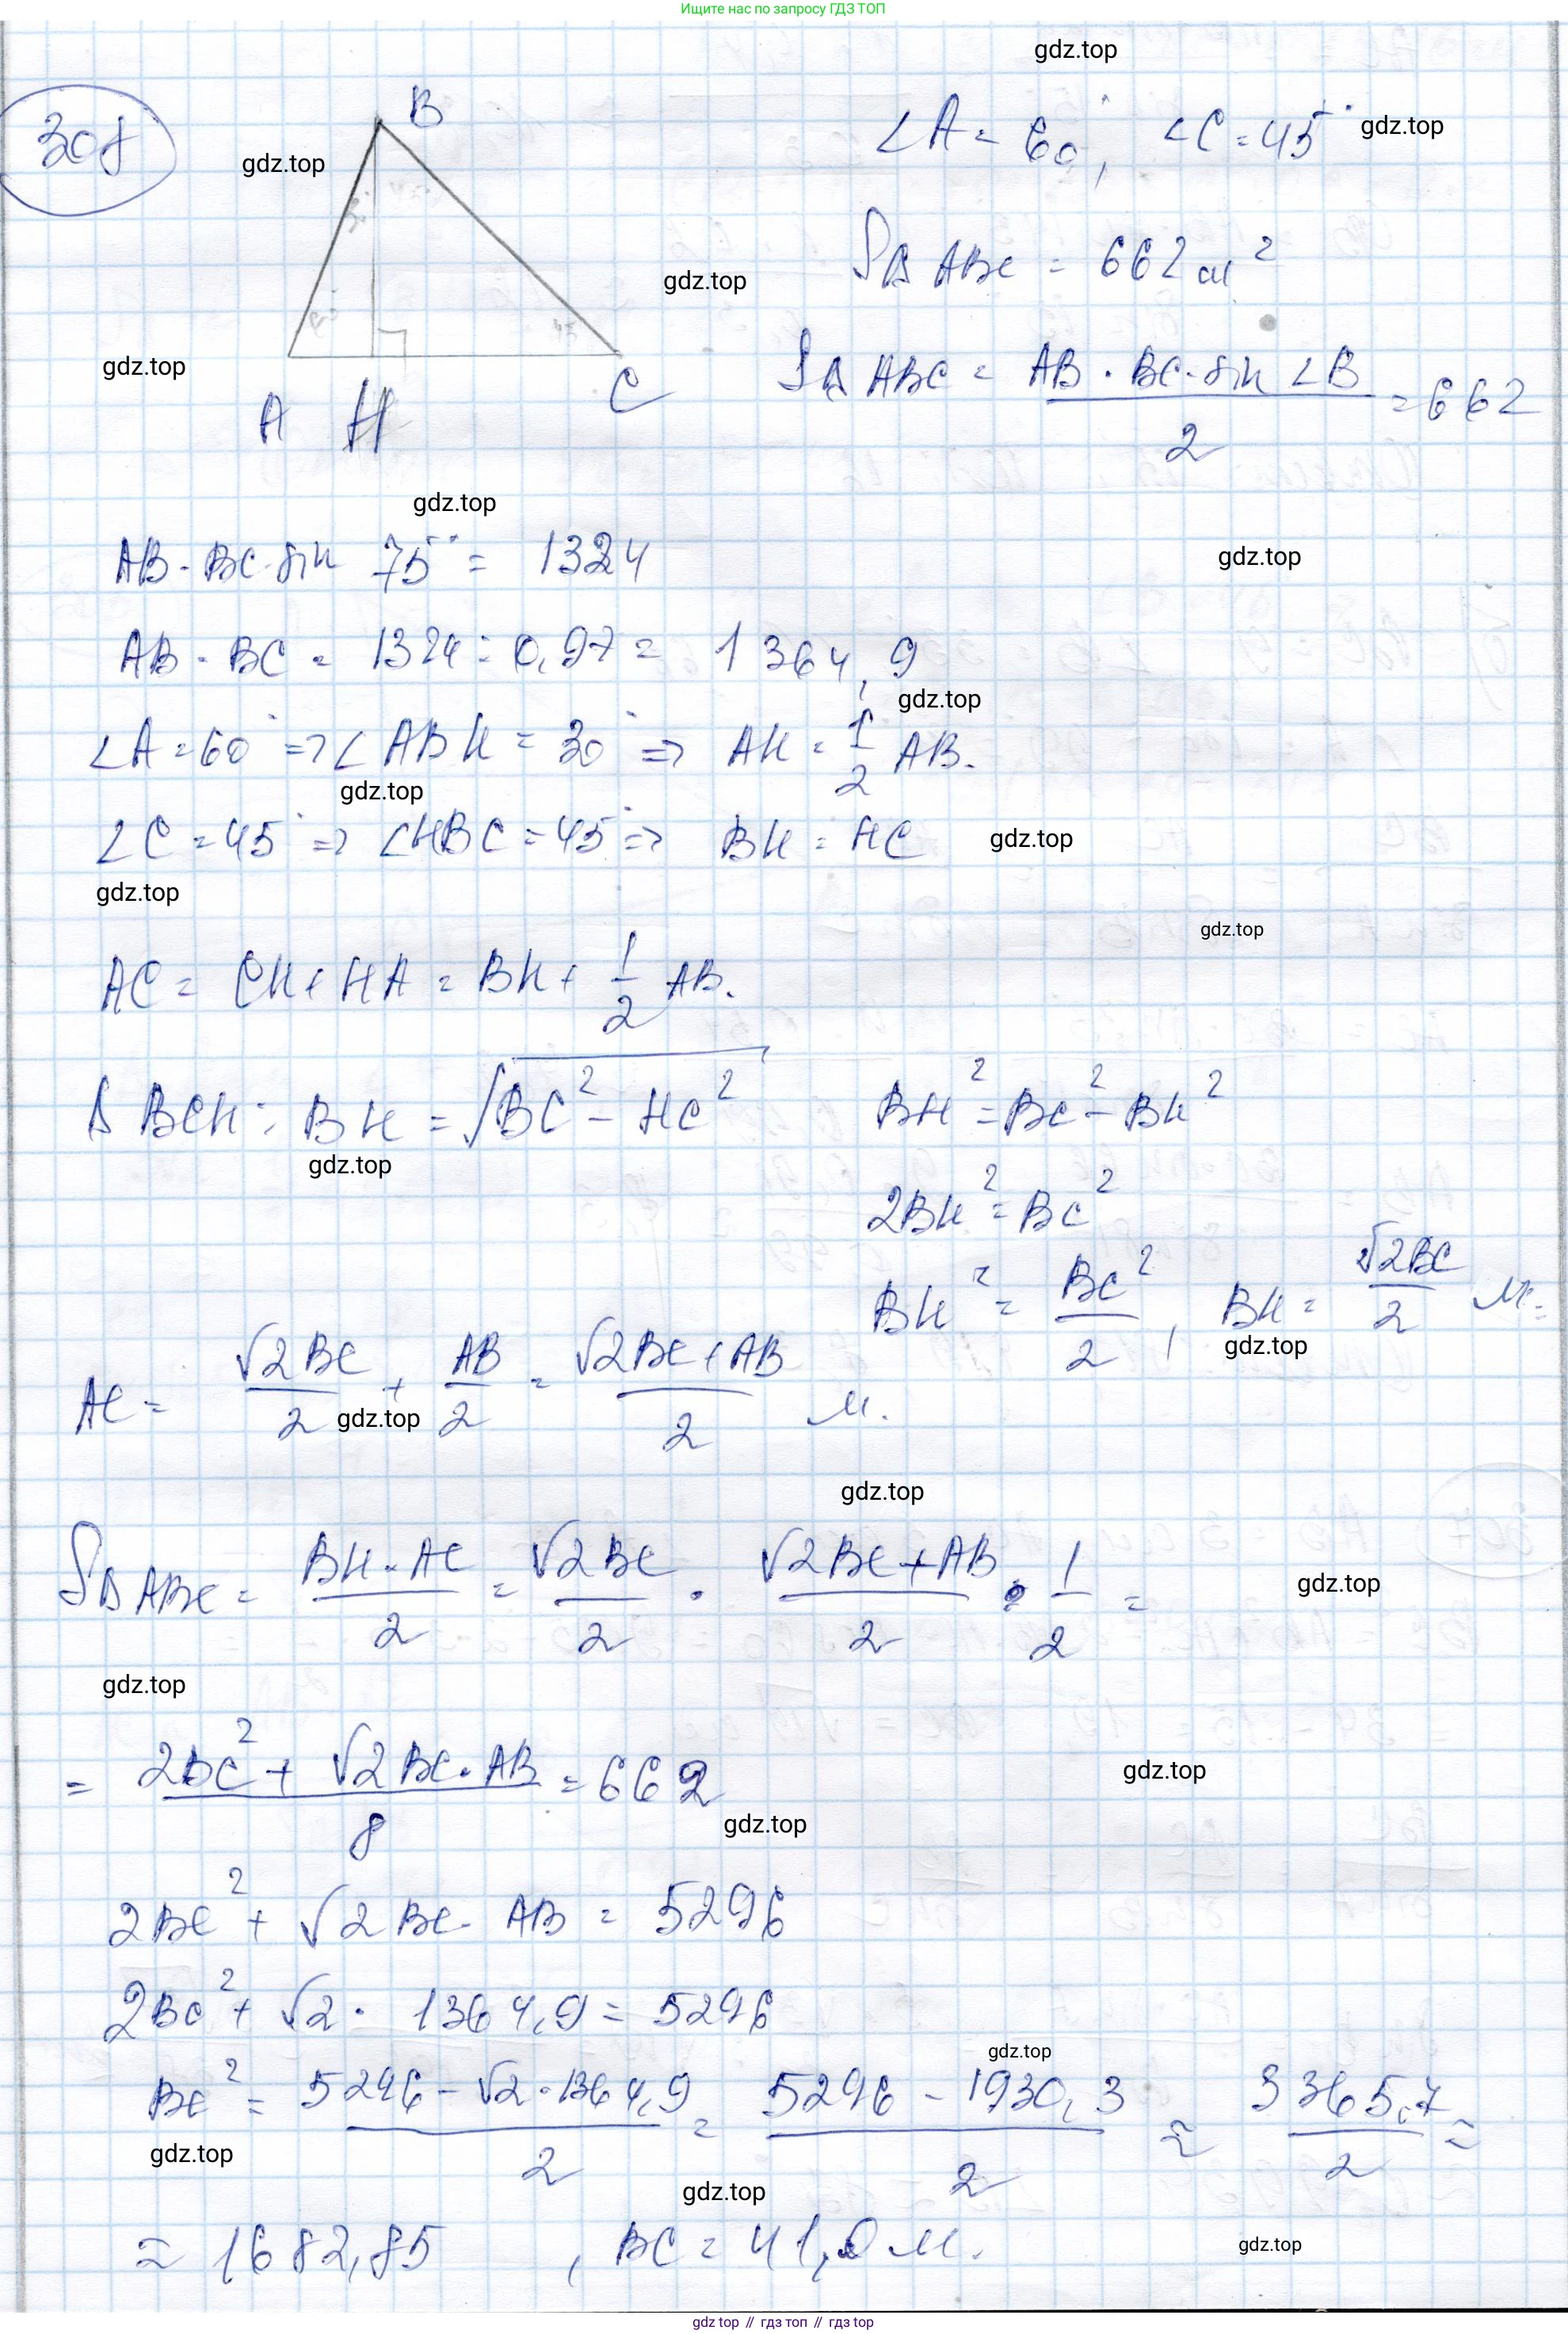 Ищите нас по запросу ГДЗ ТОП
gdz.top
308
B
∠A = 60°, ∠C = 45°
gdz.top
gdz.top
S△ABC = 662 м²
gdz.top
gdz.top
A H C
S△ABC = (AB · BC · sin ∠B)/2 = 662
gdz.top
AB · BC · sin 75° = 1324
gdz.top
AB · BC = 1324 : 0,97 = 1364,9
gdz.top
∠A = 60° => ∠ABH = 30° => AH = 1/2 AB.
gdz.top
∠C = 45° => ∠HBC = 45° => BH = HC
gdz.top
gdz.top
gdz.top
AC = CH + HA = BH + 1/2 AB.
△BCH: BH = √(BC² - HC²)
BH² = BC² - BH²
gdz.top
2BH² = BC²
BH² = BC²/2, BH = √2BC/2 м.
gdz.top
AC = √2BC/2 + AB/2 = (√2BC + AB)/2 м.
gdz.top
gdz.top
S△ABC = (BH · AC)/2 = √2BC/2 · (√2BC + AB)/2 · 1/2 =
gdz.top
gdz.top
= (2BC² + √2BC · AB)/8 = 662
gdz.top
gdz.top
2BC² + √2BC · AB = 5296
2BC² + √2 · 1364,9 = 5296
gdz.top
BC² = (5296 - √2 · 1364,9)/2 = (5296 - 1930,3)/2 ≈ 3365,7/2 ≈
gdz.top
gdz.top
≈ 1682,85, BC = 41,0 м.
gdz.top
gdz top // гдз топ // gdz top